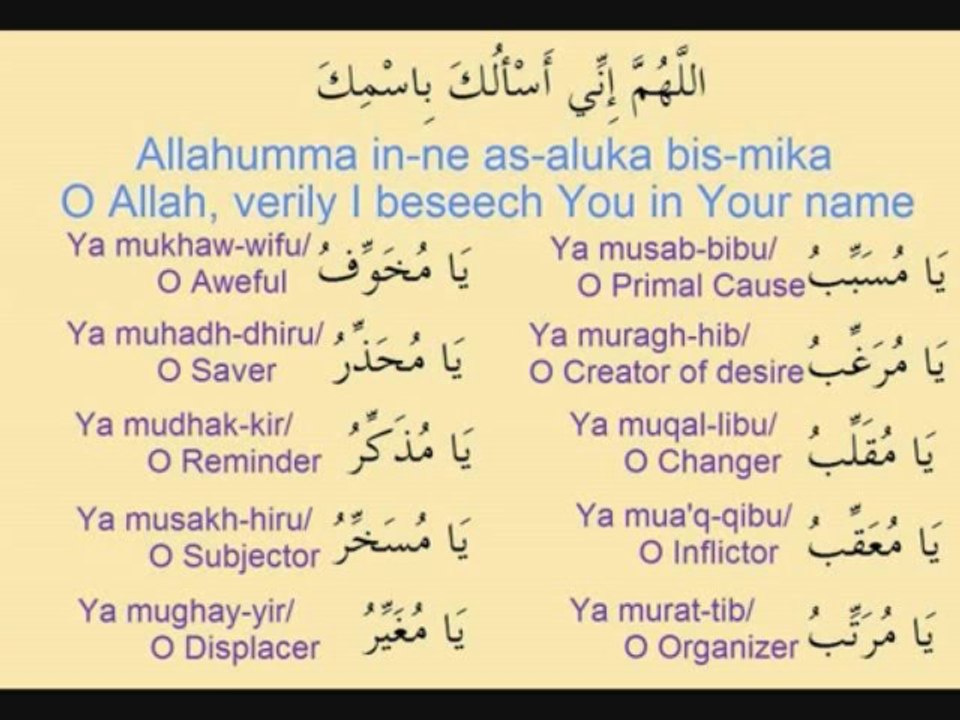 اللَّهُمَّ إِنِّي أَسْأَلُكَ بِاسْمِكَ
Allahumma in-ne as-aluka bis-mika
O Allah, verily I beseech You in Your name
Ya musab-bibu/
O Primal Cause
يَا مُسَبِّبُ
Ya mukhaw-wifu/
O Aweful
يَا مُخَوِّفُ
Ya muragh-hib/
O Creator of desire
يَا مُرَغِّبُ
Ya muhadh-dhiru/
O Saver
يَا مُحَذِّرُ
Ya muqal-libu/
O Changer
يَا مُقَلِّبُ
Ya mudhak-kir/
O Reminder
يَا مُذَكِّرُ
Ya mua'q-qibu/
O Inflictor
يَا مُعَقِّبُ
Ya musakh-hiru/
O Subjector
يَا مُسَخِّرُ
Ya murat-tib/
O Organizer
يَا مُرَتِّبُ
Ya mughay-yir/
O Displacer
يَا مُغَيِّرُ